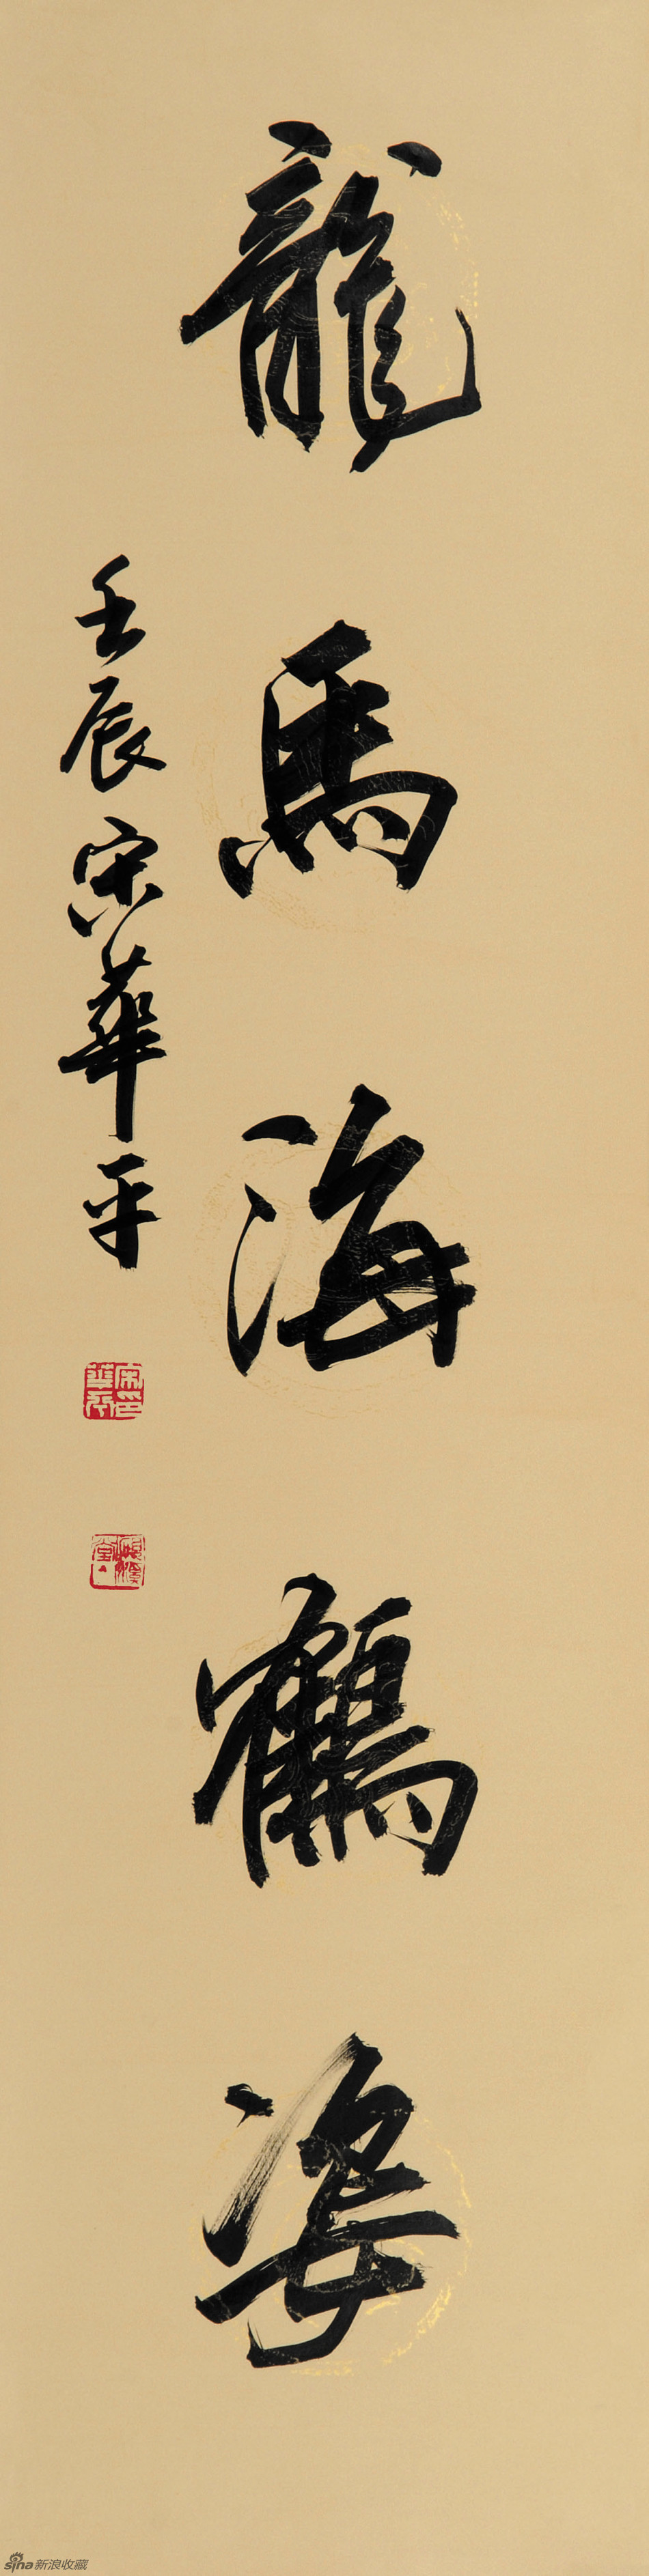 龍馬海鶴姿
壬辰宋華平
宋華平印
sina新浪收藏